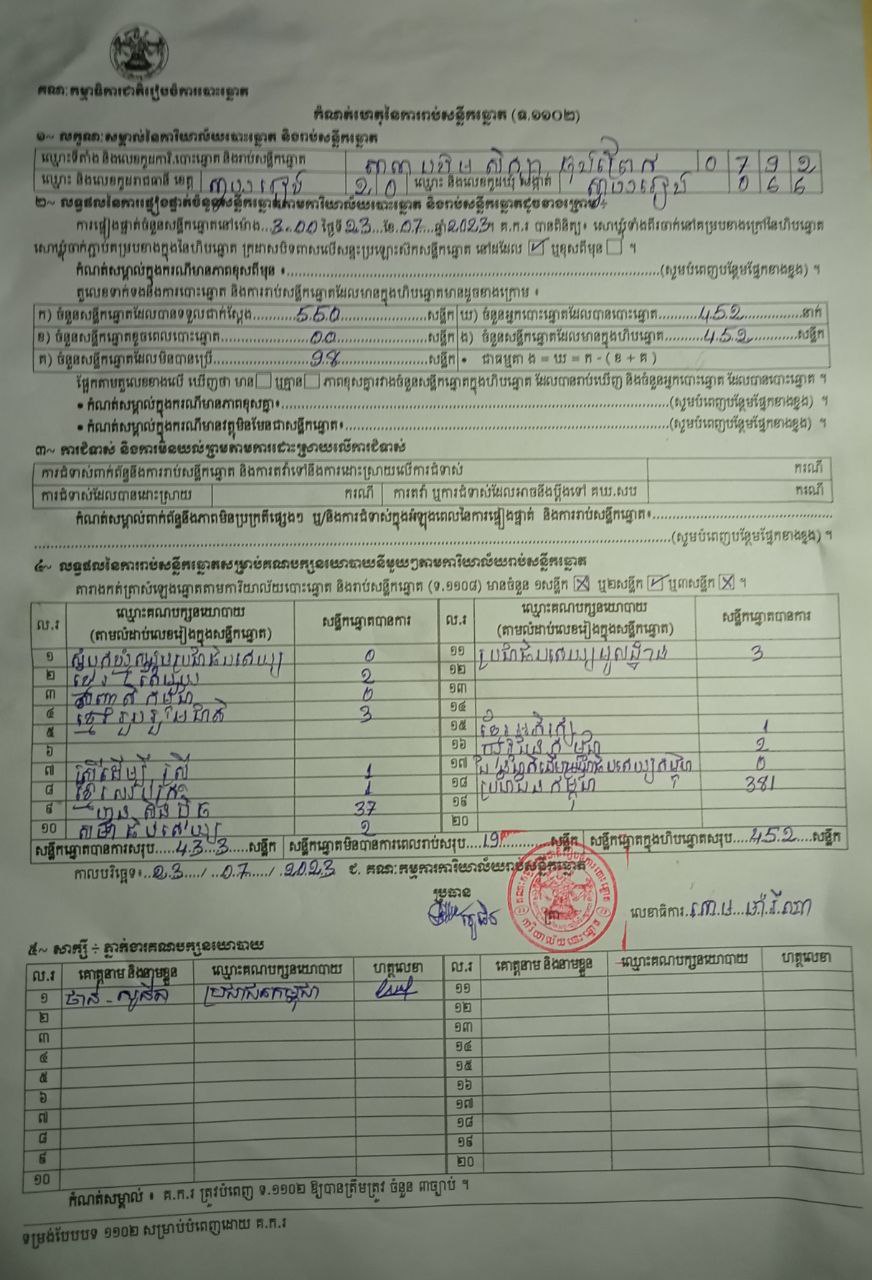 គណៈកម្មាធិការជាតិរៀបចំការបោះឆ្នោត
កំណត់ហេតុនៃការរាប់សន្លឹកឆ្នោត (ធ.១១០២)
១~ លក្ខណៈសម្គាល់នៃការិយាល័យបោះឆ្នោត និងរាប់សន្លឹកឆ្នោត
ឈ្មោះទីតាំង និងលេខកូដការិ.បោះឆ្នោត និងរាប់សន្លឹកឆ្នោត 0 7 9 2
ឈ្មោះ និងលេខកូដរាជធានី ខេត្ត ស្វាយរៀង 2 0 ឈ្មោះ និងលេខកូដឃុំ សង្កាត់ ស្វាយរៀង 0 6 6
២~ លទ្ធផលនៃការផ្ទៀងផ្ទាត់ចំនួនសន្លឹកឆ្នោតតាមការិយាល័យបោះឆ្នោត និងរាប់សន្លឹកឆ្នោតដូចខាងក្រោម ÷
ការផ្ទៀងផ្ទាត់ចំនួនសន្លឹកឆ្នោតនៅម៉ោង...3.00 ថ្ងៃទី23...ខែ.07...ឆ្នាំ2023។ គ.ក.រ បានពិនិត្យ៖ សោឃ្លុំទាំងពីរចាក់នៅគម្របខាងក្រៅនៃហិបឆ្នោត
សោឃ្លុំចាក់ភ្ជាប់គម្របខាងក្នុងនៃហិបឆ្នោត ក្រដាសបិទពាសលើសន្ទះប្រឡោះស៊កសន្លឹកឆ្នោត នៅដដែល ☑ ឬខុសពីមុន ☐ ។
កំណត់សម្គាល់ក្នុងករណីមានភាពខុសពីមុន ៖..........(សូមបំពេញបន្ថែមផ្នែកខាងខ្នង) ។
តួលេខទាក់ទងនឹងការបោះឆ្នោត និងការរាប់សន្លឹកឆ្នោតដែលមានក្នុងហិបឆ្នោតមានដូចខាងក្រោម ៖
ក) ចំនួនសន្លឹកឆ្នោតដែលបានទទួលជាក់ស្តែង..........550..........សន្លឹក ឃ) ចំនួនអ្នកបោះឆ្នោតដែលបានបោះឆ្នោត..........452..........នាក់
ខ) ចំនួនសន្លឹកឆ្នោតខូចពេលបោះឆ្នោត..........00..........សន្លឹក ង) ចំនួនសន្លឹកឆ្នោតដែលមានក្នុងហិបឆ្នោត..........452..........សន្លឹក
គ) ចំនួនសន្លឹកឆ្នោតដែលមិនបានប្រើ..........98..........សន្លឹក • ជាធម្មតា ង = ឃ = ក - ( ខ + គ )
ផ្អែកតាមតួលេខខាងលើ ឃើញថា មាន ☐ ឬគ្មាន ☐ ភាពខុសគ្នារវាងចំនួនសន្លឹកឆ្នោតក្នុងហិបឆ្នោត ដែលបានរាប់ឃើញ និងចំនួនអ្នកបោះឆ្នោត ដែលបានបោះឆ្នោត ។
• កំណត់សម្គាល់ក្នុងករណីមានភាពខុសគ្នា៖..........(សូមបំពេញបន្ថែមផ្នែកខាងខ្នង) ។
• កំណត់សម្គាល់ក្នុងករណីមានវត្ថុមិនមែនជាសន្លឹកឆ្នោត៖..........(សូមបំពេញបន្ថែមផ្នែកខាងខ្នង) ។
៣~ ការជំទាស់ និងការមិនយល់ព្រមតាមការដោះស្រាយលើការជំទាស់
ការជំទាស់ពាក់ព័ន្ធនឹងការរាប់សន្លឹកឆ្នោត និងការតវ៉ាទៅនឹងការដោះស្រាយលើការជំទាស់ ករណី
ការជំទាស់ដែលបានដោះស្រាយ ករណី ការតវ៉ា ឬការជំទាស់ដែលអាចនឹងប្តឹងទៅ គឃ.សប ករណី
កំណត់សម្គាល់ពាក់ព័ន្ធនឹងភាពមិនប្រក្រតីផ្សេងៗ ឬ/និងការជំទាស់ក្នុងអំឡុងពេលនៃការផ្ទៀងផ្ទាត់ និងការរាប់សន្លឹកឆ្នោត៖..........
..........(សូមបំពេញបន្ថែមផ្នែកខាងខ្នង) ។
៤~ លទ្ធផលនៃការរាប់សន្លឹកឆ្នោតសម្រាប់គណបក្សនយោបាយនីមួយៗតាមការិយាល័យរាប់សន្លឹកឆ្នោត
តារាងកត់ត្រាសំឡេងឆ្នោតតាមការិយាល័យបោះឆ្នោត និងរាប់សន្លឹកឆ្នោត (ទ.១១០៨) មានចំនួន ១សន្លឹក ☒ ឬ២សន្លឹក ☑ ឬ៣សន្លឹក ☒ ។
ល.រ ឈ្មោះគណបក្សនយោបាយ (តាមលំដាប់លេខរៀងក្នុងសន្លឹកឆ្នោត) សន្លឹកឆ្នោតបានការ ល.រ ឈ្មោះគណបក្សនយោបាយ (តាមលំដាប់លេខរៀងក្នុងសន្លឹកឆ្នោត) សន្លឹកឆ្នោតបានការ
១ សំបុកឃ្មុំសង្គមប្រជាធិបតេយ្យ 0 ១១ ប្រជាធិបតេយ្យមូលដ្ឋាន 3
២ 2 ១២
៣ 0 ១៣
៤ ខ្មែររួបរួមជាតិ 3 ១៤
៥ ១៥ ខ្មែរអភិរក្ស 1
៦ ១៦ 2
៧ ស្ត្រីដើម្បីស្ត្រី 1 ១៧ 0
៨ 1 ១៨ ប្រជាជនកម្ពុជា 381
៩ ហ្វ៊ុនស៊ិនប៉ិច 37 ១៩
១០ 2 ២០
សន្លឹកឆ្នោតបានការសរុប.....433.....សន្លឹក សន្លឹកឆ្នោតមិនបានការពេលរាប់សរុប.....19.....សន្លឹក សន្លឹកឆ្នោតក្នុងហិបឆ្នោតសរុប.....452.....សន្លឹក
កាលបរិច្ឆេទ៖...23..../..07...../..2023 ជ. គណៈកម្មការការិយាល័យរាប់សន្លឹកឆ្នោត
ប្រធាន
ត្រា លេខាធិការ
៥~ សាក្សី ÷ ភ្នាក់ងារគណបក្សនយោបាយ
ល.រ គោត្តនាម និងនាមខ្លួន ឈ្មោះគណបក្សនយោបាយ ហត្ថលេខា ល.រ គោត្តនាម និងនាមខ្លួន ឈ្មោះគណបក្សនយោបាយ ហត្ថលេខា
១ ប្រជាជនកម្ពុជា ១១
២ ១២
៣ ១៣
៤ ១៤
៥ ១៥
៦ ១៦
៧ ១៧
៨ ១៨
៩ ១៩
១០ ២០
កំណត់សម្គាល់ ៖ គ.ក.រ ត្រូវបំពេញ ទ.១១០២ ឱ្យបានត្រឹមត្រូវ ចំនួន ៣ច្បាប់ ។
ទម្រង់បែបបទ ១១០២ សម្រាប់បំពេញដោយ គ.ក.រ